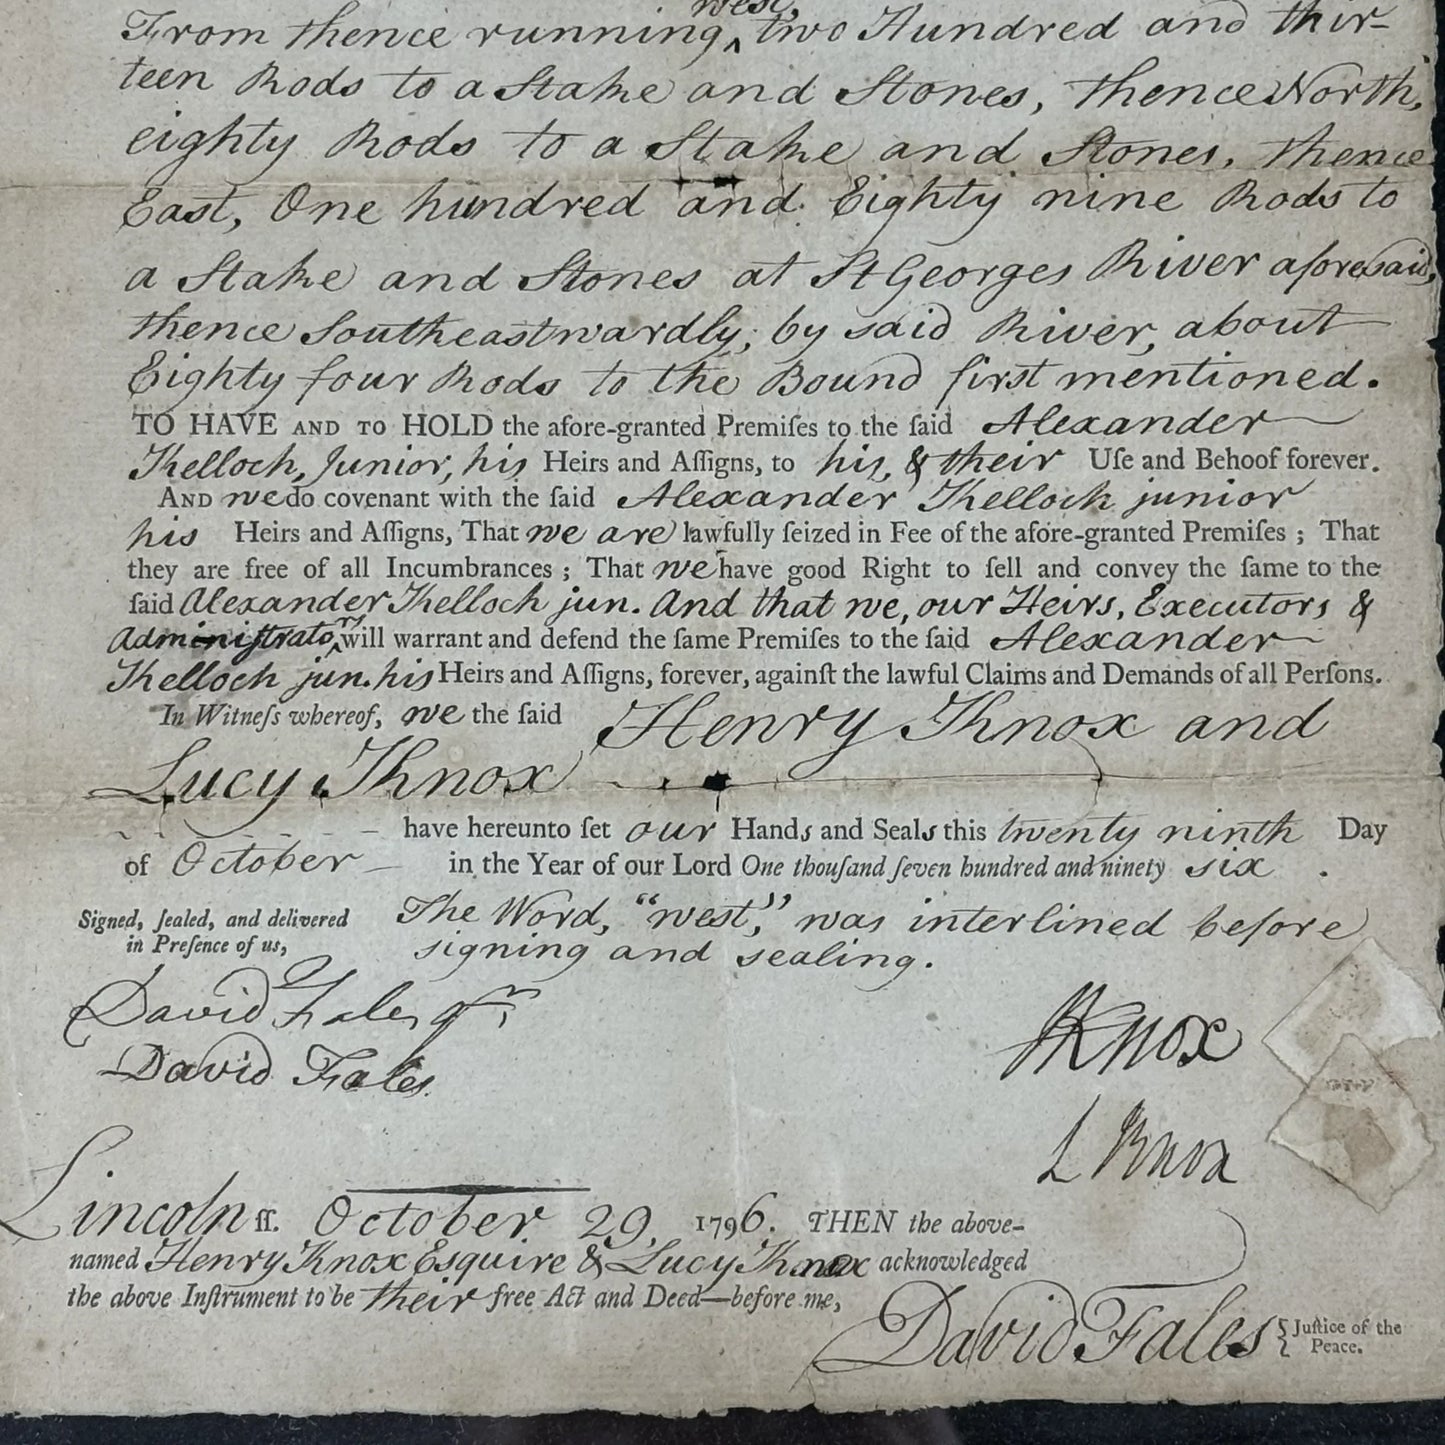 west,
From thence running, ‸ two Hundred and thir-
teen Rods to a Stake and Stones, thence North,
eighty Rods to a Stake and Stones, thence
East, One hundred and Eighty nine Rods to
a Stake and Stones at St Georges River aforesaid,
thence Southeastwardly, by said River, about
Eighty four Rods to the Bound first mentioned.
TO HAVE AND TO HOLD the afore-granted Premiſes to the ſaid Alexander
Kelloch, Junior, his Heirs and Aſſigns, to his, & their Uſe and Behoof forever.
AND we do covenant with the ſaid Alexander Kelloch junior
his Heirs and Aſſigns, That we are lawfully ſeized in Fee of the afore-granted Premiſes ; That
they are free of all Incumbrances ; That we have good Right to ſell and convey the ſame to the
ſaid Alexander Kelloch jun. And that we, our Heirs, Executors &
Adminiſtrators ‸ will warrant and defend the ſame Premiſes to the ſaid Alexander
Kelloch jun. his Heirs and Aſſigns, forever, againſt the lawful Claims and Demands of all Perſons.
In Witneſs whereof, we the ſaid Henry Knox and
Lucy Knox
have hereunto ſet our Hands and Seals this twenty ninth Day
of October in the Year of our Lord One thouſand ſeven hundred and ninety six .
Signed, ſealed, and delivered
in Preſence of us,
The Word, "west," was interlined before
signing and sealing.
David Fales Jr
David Fales.
HKnox
L Knox
Lincoln ſſ. October 29, 1796. THEN the above-
named Henry Knox Esquire & Lucy Knox acknowledged
the above Inſtrument to be their free Act and Deed—before me,
David Fales { Juſtice of the
Peace.